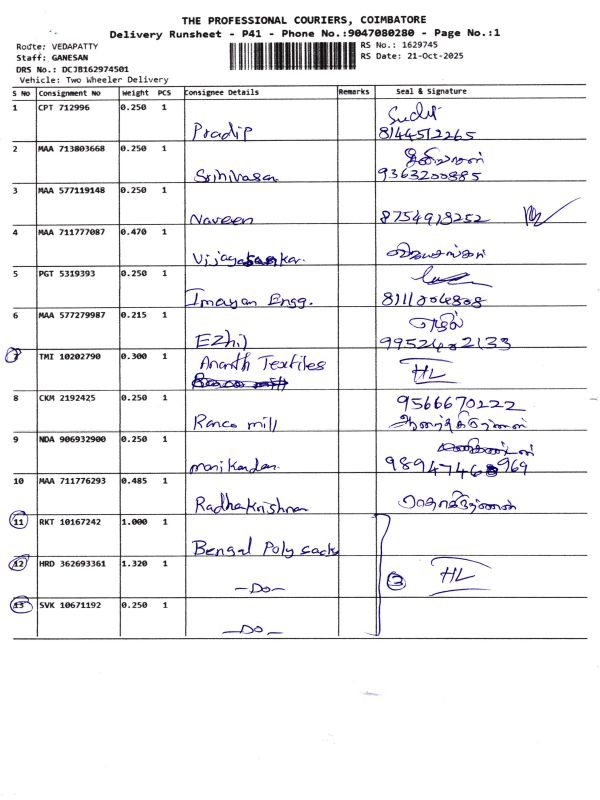 THE PROFESSIONAL COURIERS, COIMBATORE
Delivery Runsheet - P41 - Phone No.:9047080280 - Page No.:1
Route: VEDAPATTY
RS No.: 1629745
Staff: GANESAN
RS Date: 21-Oct-2025
DRS No.: DCJB162974501
Vehicle: Two Wheeler Delivery
S No Consignment No Weight PCS Consignee Details Remarks Seal & Signature
1 CPT 712996 0.250 1
Pradip 8144512265
2 MAA 713803668 0.250 1
Srinivasan 9363200885
3 MAA 577119148 0.250 1
Naveen 8754918252
4 MAA 711777087 0.470 1
5 PGT 5319393 0.250 1
Imayan Engg. 8111004808
6 MAA 577279987 0.215 1
Ezhil 9952402133
7 TMI 10202790 0.300 1 Ananth Textiles HL
8 CKM 2192425 0.250 1 9566670222
Ranco mill
9 NDA 906932900 0.250 1
manikandan
10 MAA 711776293 0.485 1
Radhakrishnan
11 RKT 10167242 1.000 1
Bengal Poly sack
12 HRD 362693361 1.320 1
-Do- 3 HL
13 SVK 10671192 0.250 1
-Do-